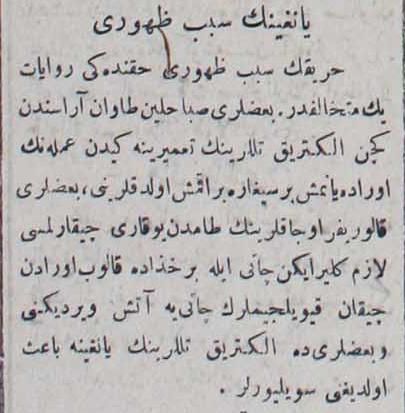 يانغينك سبب ظهورى
حريقك سبب ظهورى حقنده كى روايات
پك متخالفدر . بعضلرى صباحلين طاوان آراسندن
كچن الكتريق تللرينك تعميرينه كيدن عمله نك
اوراده يانمش بر سيغاره براقمش اولدقلرينى ، بعضلرى
قالوريفر اوجاقلرينك طامدن يوقارى چيقارلمسى
لازم كليرايكن چاتى ايله بر حذاده قالوب اورادن
چيقان قيويلجيملرك چاتى يه آتش ويرديكينى
و بعضلرى ده الكتريق تللرينك يانغينه باعث
اولديغنى سويليورلر .